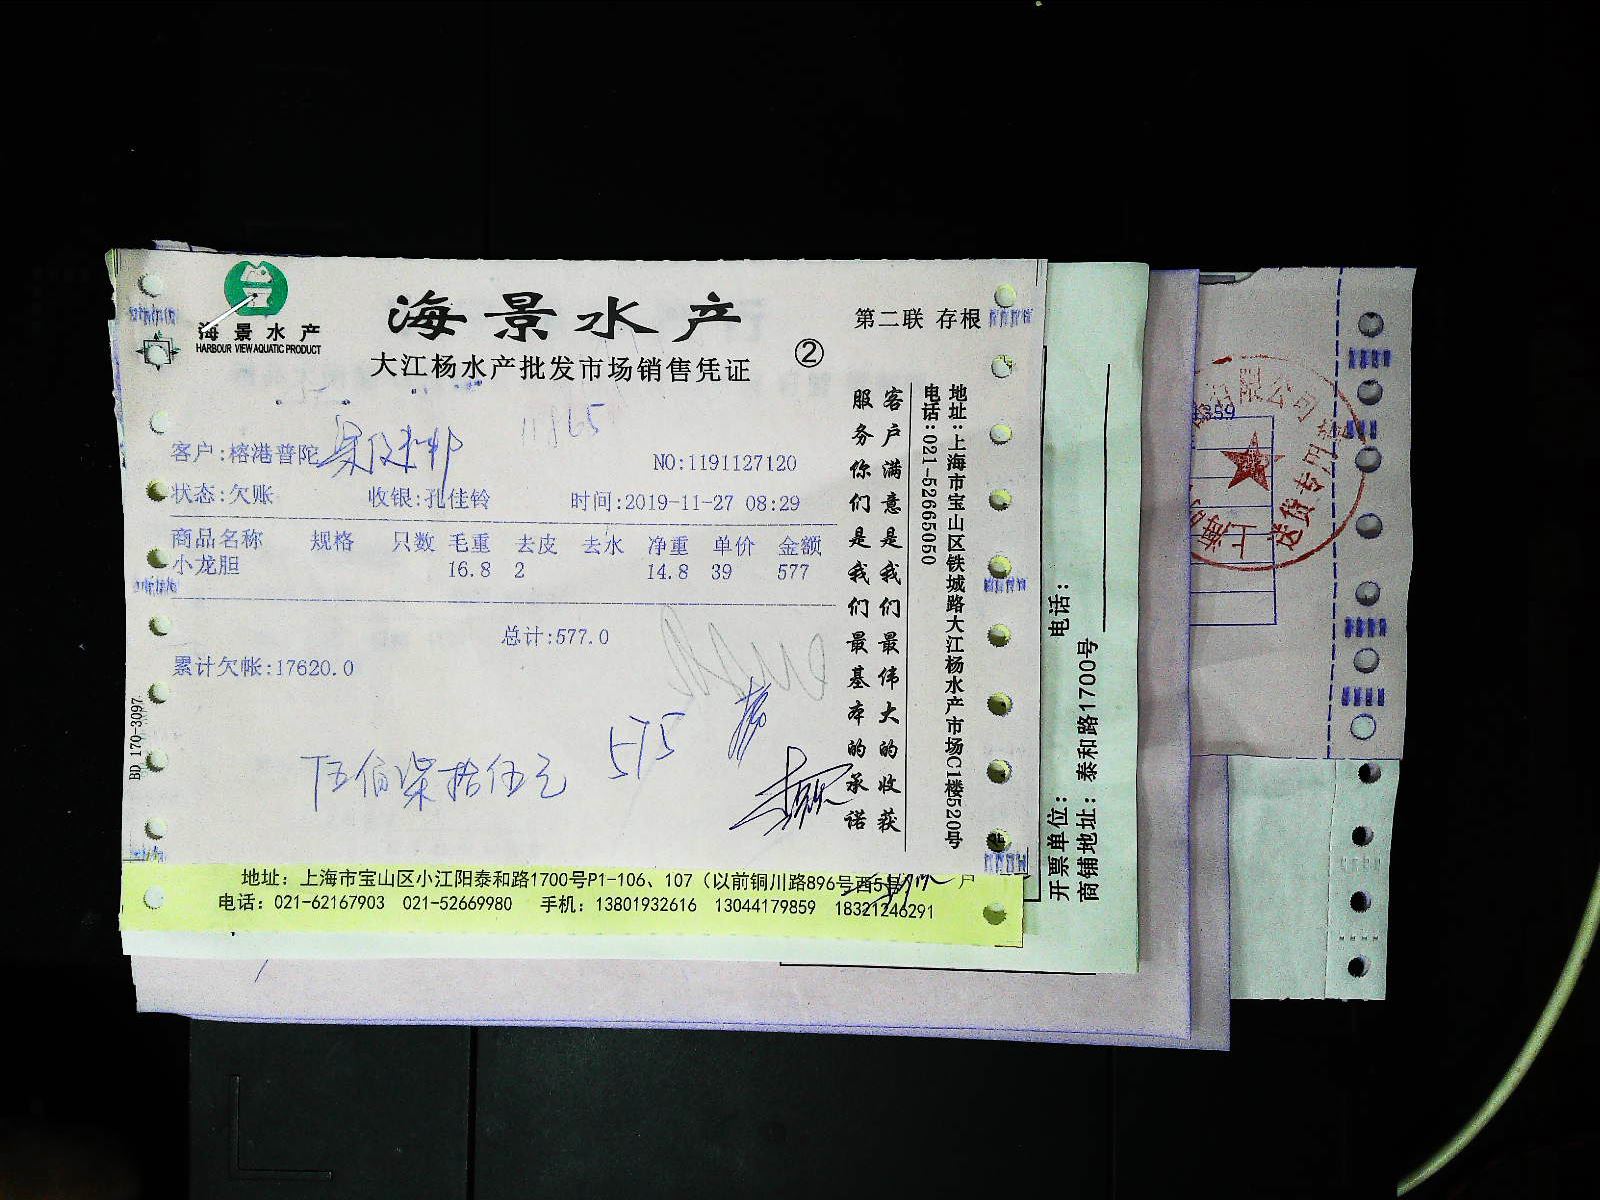 海景水产
HARBOUR VIEW AQUATIC PRODUCT
海景水产
大江杨水产批发市场销售凭证
②
第二联 存根
客户:榕港普陀
NO:1191127120
状态:欠账 收银:孔佳铃 时间:2019-11-27 08:29
商品名称 规格 只数 毛重 去皮 去水 净重 单价 金额
小龙胆 16.8 2 14.8 39 577
总计:577.0
累计欠帐:17620.0
575
伍佰柒拾伍元
BD 170-3097
客户满意是我们最伟大的收获
服务你们是我们最基本的承诺
地址:上海市宝山区铁城路大江杨水产市场C1楼520号
电话:021-52665050
地址：上海市宝山区小江阳泰和路1700号P1-106、107（以前铜川路896号西5号
电话：021-62167903 021-52669980 手机：13801932616 13044179859 18321246291
开票单位：
电话：
商铺地址：泰和路1700号
359
限公司
上海
送货专用